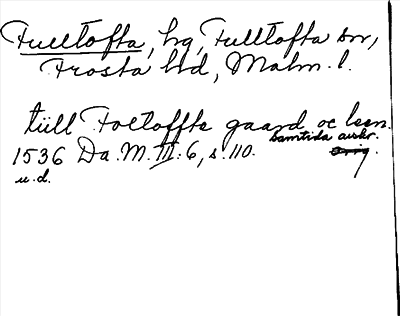 Fulltofta, hg, Fulltofta sn,
Frosta hd, Malm. l.
till Foltoffte gaard oc len.
samtida avskr.
1536 Da. M. III: 6, s. 110. orig.
u.d.